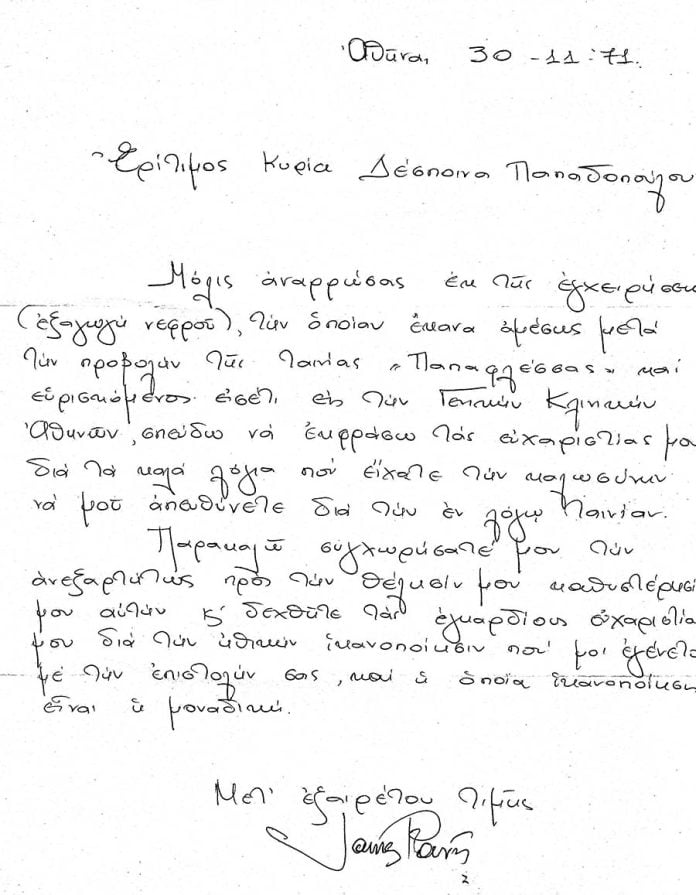 Ἀθῆναι 30-11-71.
Ἐρίτιμος Κυρία Δέσποινα Παπαδοπούλου
Μόλις ἀναρρώσας ἐκ τῆς ἐγχειρήσεω
(ἐξαγωγή νεφροῦ), τήν ὁποίαν ἔκανα ἀμέσως μετά
τήν προβολήν τῆς ταινίας "Παπαφλέσσας" καί
εὑρισκόμενος εἰσέτι εἰς τήν Γενικήν Κλινικήν
Ἀθηνῶν, σπεύδω νά ἐκφράσω τάς εὐχαριστίας μο
διά τά καλά λόγια πού εἴχατε τήν καλωσύνην
νά μοῦ ἀπευθύνετε διά τήν ἐν λόγῳ ταινίαν.
Παρακαλῶ συγχωρήσατέ μου τήν
ἀνεξαρτήτως πρός τήν θέλησίν μου καθυστέρησί
μου αὐτήν κ' δεχθῆτε τάς ἐγκαρδίους εὐχαριστία
μου διά τήν ἠθικήν ἱκανοποίησιν πού μοι ἐγένετο
μέ τήν ἐπιστολήν σας, καί ἡ ὁποία ἱκανοποίηση
εἶναι ἡ μοναδική.
Μετ' ἐξαιρέτου τιμῆς